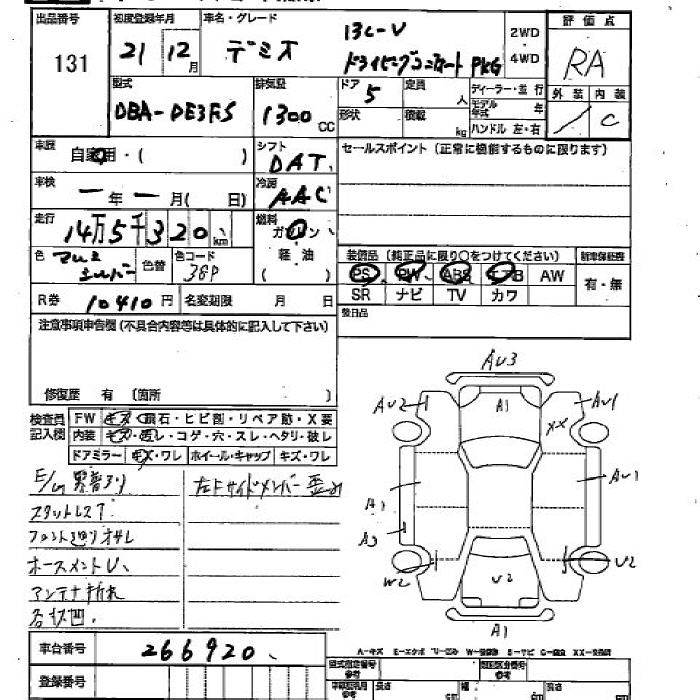 出品番号 初度登録年月 車名・グレード 評価点
131 21 12月 デミオ 13C-V 2WD・4WD RA
型式 排気量 ドア 5 定員 人 ディーラー・並行 外装 内装
DBA-DE3FS 1300CC 形状 積載 kg モデル年式 年 ハンドル 左・右 / C
車歴 自家用・( ) シフト DAT セールスポイント (正常に機能するものに限ります)
車検 一年一月( 日) 冷房 AAC
走行 14万5千320km 燃料 ガソリン 軽油 ( )
色 シルバー 色替 色コード 38P
装備品 (純正品に限り○をつけてください) 新車保証書
PS PW ABS エアB AW 有・無
SR ナビ TV カワ
R券 10410円 名変期限 月 日
注意事項申告欄(不具合内容等は具体的に記入して下さい)
修復歴 有 (箇所 )
検査員記入欄 FW キズ・飛石・ヒビ割・リペア跡・X要
内装 キズ・汚レ・コゲ・穴・スレ・ヘタリ・破レ
ドアミラー キズ・ワレ ホイール・キャップ キズ・ワレ
E/G 異音アリ
スタットレスT
アンテナ折れ
各状凹
左Fサイドメンバー歪み
AU3
AU2 A1 XX AU1
A1 AU1
A3
W2 U2 U2
A1
車台番号 266920
登録番号
A-キズ E-エクボ U-凹み W-修理跡 S-サビ C-腐食 XX-交換済
型式指定番号 類別区分番号
長さ cm 幅 cm 高さ cm